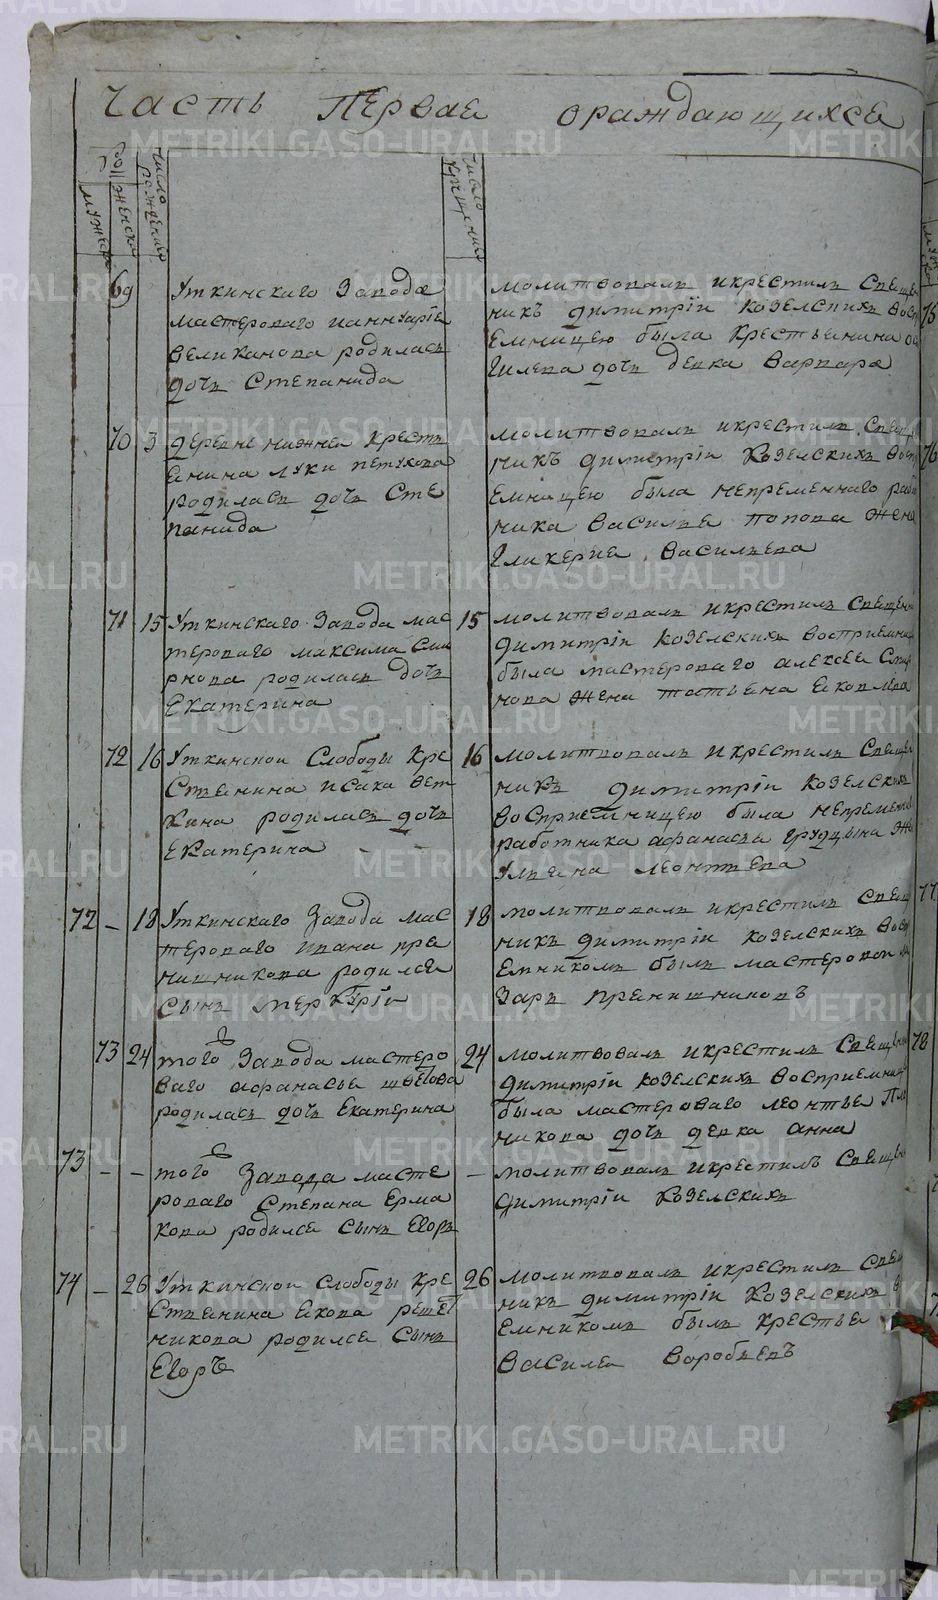 Часть Первая ораждающихся
Число рождения
женска
мужеска
Число крещения
69 Уткинскаго Завода
мастероваго Ианнуарiя
Великанова родилась
дочь Степанида
Молитвовалъ и крестилъ Свеще
никъ Димитрiй Козелскихъ Восп
емницею была крестьенина
дочь девка Варвара
70 3 деревне нижнея крестъ
енина Луки Петухова
родилась дочь Сте
панида
Молитвовалъ и крестилъ Свеще
никъ Димитрiй Козелскихъ Восп
емницею была непременнаго раб
ника Василья Попова жена
Гликерие Васильева
71 15 Уткинскаго Завода мас
тероваго Максима Сми
рнова родилась дочь
Екатерина
15 Молитвовалъ и крестилъ Свещен
Димитрiй Козелскихъ Восприемни
была мастероваго Алексея Смир
нова жена Татьена Ековлева
72 16 Уткинской Слободы кре
стьенина Исака Вет
кина родилась дочь
Екатерина
16 Молитвовалъ и крестилъ Свеще
никъ Димитрiй Козелскихъ
Восприемницею была непремен
работника Афанасья Грудцына же
Ульена Леонтьева
72 – 18 Уткинскаго Завода мас
тероваго Ивана Пре
нишникова родился
сынъ Меркурiй
18 Молитвовалъ и крестилъ Свеще
никъ Димитрiй Козелскихъ Восп
емникомъ былъ мастеровой
заръ Пренишниковъ
73 24 того Завода мастеро
ваго Афанасья Швецова
родилась дочь Екатерина
24 Молитвовалъ и крестилъ Свеще
Димитрiй Козелскихъ Восприемни
была мастероваго Леонтье Пл
никова дочь девка Анна
73 – – того Завода масте
роваго Степана Ерма
кова родился сынъ Егоръ
– Молитвовалъ и крестилъ Свеще
Димитрiй Козелскихъ
74 – 26 Уткинской Слободы кре
стьенина Екова Решет
никова родился сынъ
Егоръ
26 Молитвовалъ и крестилъ Свещ
никъ Димитрiй Козелскихъ В
емникомъ былъ крестье
Василей Воробьевъ
75
76
77
78
METRIKI.GASO-URAL.RU